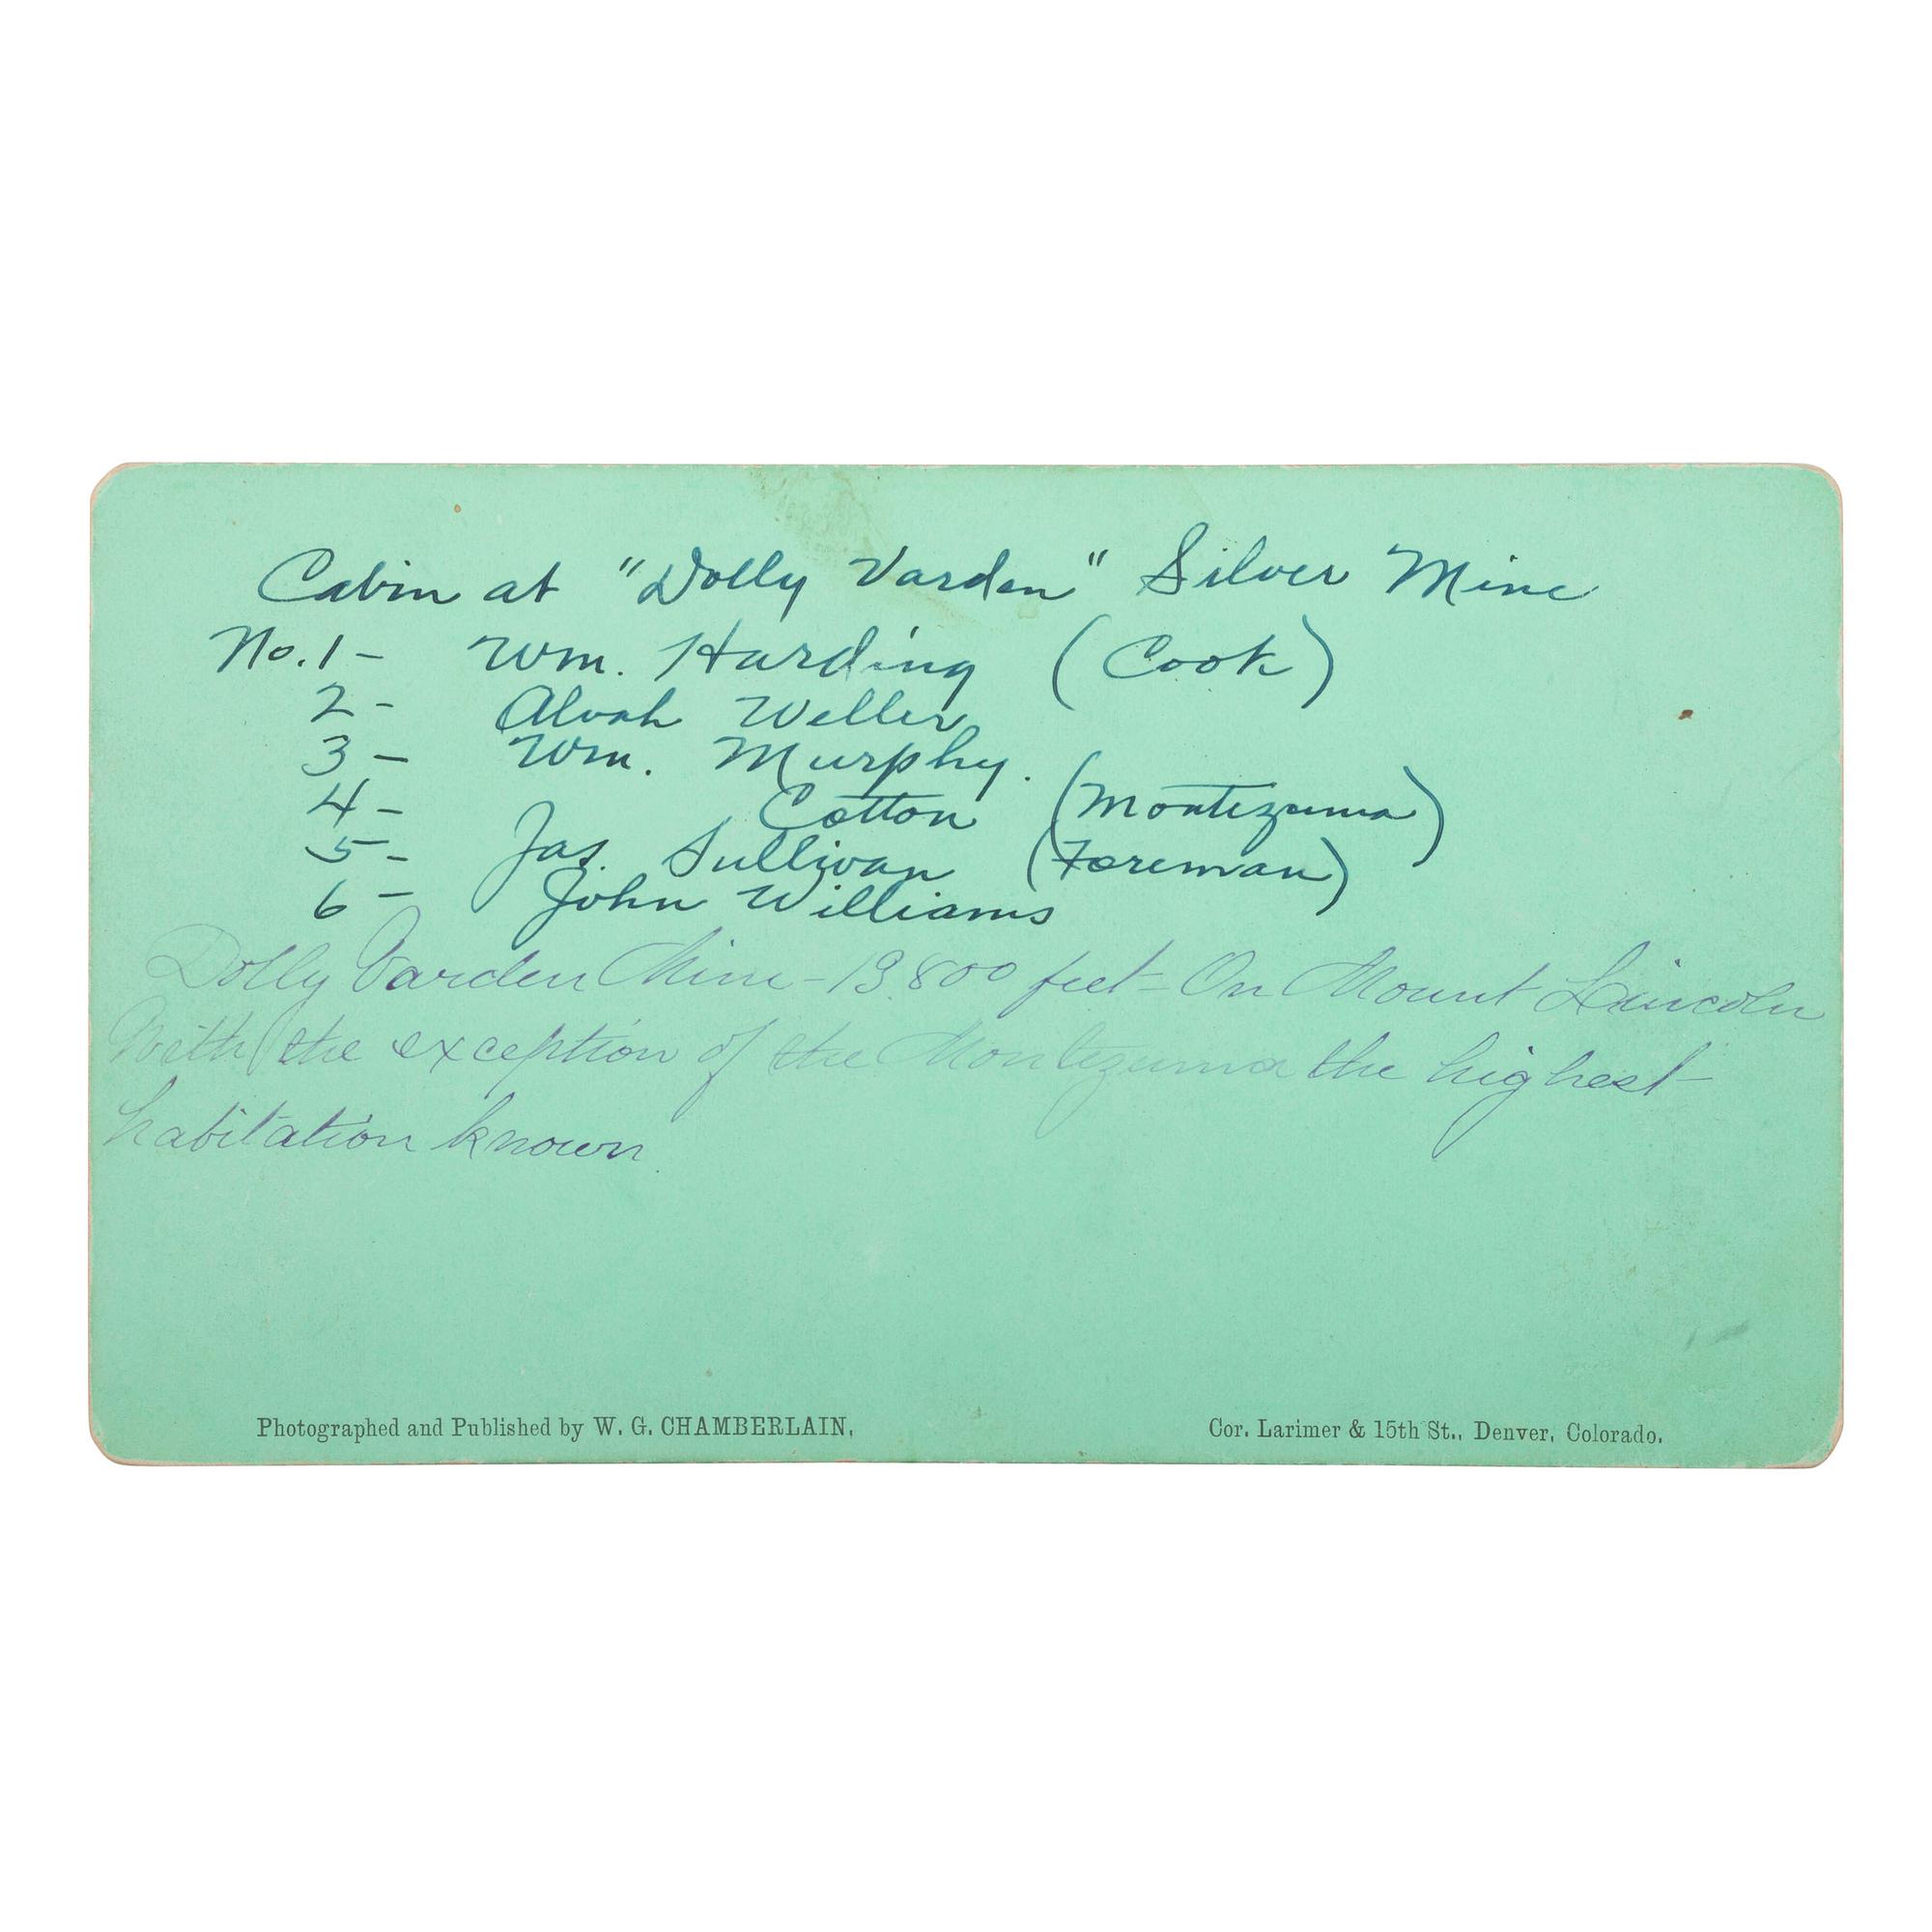 Cabin at "Dolly Varden" Silver Mine
No. 1 - Wm. Harding (Cook)
2 - Alvah Weller
3 - Wm. Murphy.
4 - Cotton (Montezuma)
5 - Jas. Sullivan (Foreman)
6 - John Williams
Dolly Varden Mine - 13.800 feet - On Mount Lincoln
With the exception of the Montezuma the highest
habitation known
Photographed and Published by W. G. CHAMBERLAIN, Cor. Larimer & 15th St., Denver, Colorado.